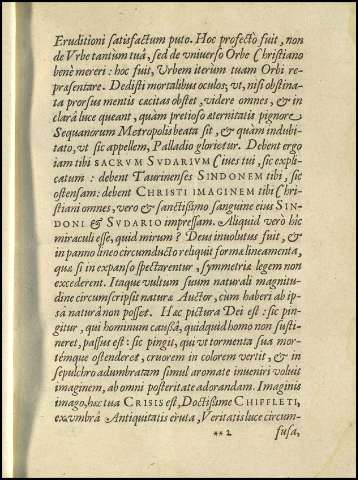 Eruditioni satisfactum puto. Hoc profectò fuit, non
de Vrbe tantùm tuâ, sed de vniuerso Orbe Christiano
benè mereri: hoc fuit, Vrbem iterum tuam Orbi re-
præsentare. Dedisti mortalibus oculos, vt, nisi obstina-
ta prorsus mentis cæcitas obstet, videre omnes, & in
clarâ luce queant, quàm pretioso æternitatis pignore
Sequanorum Metropolis beata sit, & quàm indubi-
tato, vt sic appellem, Palladio glorietur. Debent ergo
iam tibi SACRVM SVDARIVM Ciues tui, sic expli-
catum: debent Taurinenses SINDONEM tibi, sic
ostensam: debent CHRISTI IMAGINEM tibi Chri-
stiani omnes, vero & sanctissimo sanguine eius SIN-
DONI & SVDARIO impressam. Aliquid verò hîc
miraculi esse, quid mirum? Deus inuolutus fuit, &
in panno lineo circumducto reliquit formæ lineamenta,
quæ si in expanso spectarentur, symmetriæ legem non
excederent. Itaque vultum suum naturali magnitu-
dine circumscripsit naturæ Auctor, cùm haberi ab ip-
sâ naturâ non posset. Hæc pictura Dei est: sic pin-
gitur, qui hominum caussâ, quidquid homo non susti-
neret, passus est: sic pingit, qui vt tormenta sua mor-
témque ostenderet, cruorem in colorem vertit, & in
sepulchro adumbratam simul aromate inueniri voluit
imaginem, ab omni posteritate adorandam. Imaginis
imago, hæc tua CRISIS est, Doctissime CHIFFLETI,
ex vmbrâ Antiquitatis eruta, Veritatis luce circum-
**2 fusa,